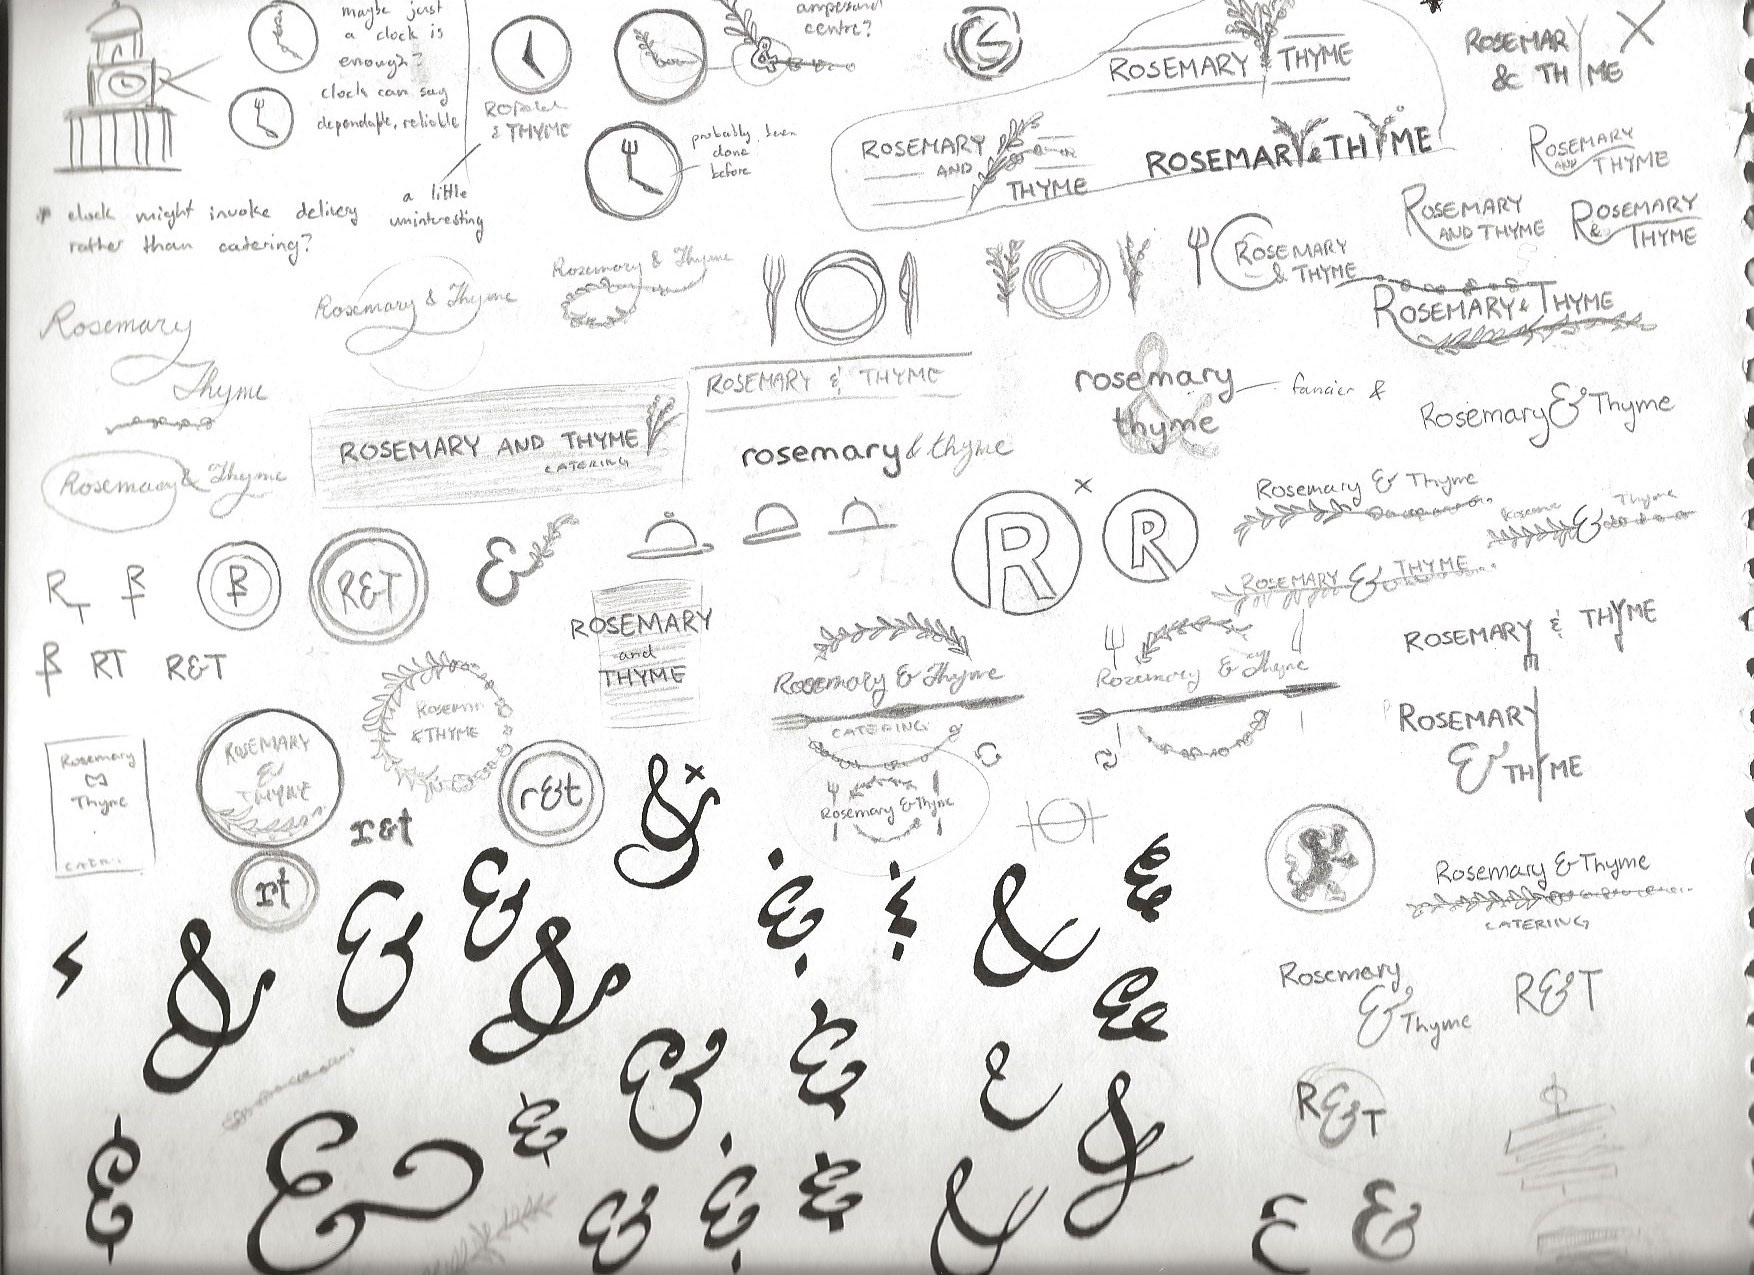 maybe just
a clock is
enough?
clock can say
dependable, reliable
& THYME
a little
uninteresting
* clock might invoke delivery
rather than catering?
probably been
done
before
ampersand
centre?
ROSEMARY THYME
ROSEMARY
& THYME
ROSEMARY
AND
THYME
ROSEMARY & THYME
ROSEMARY
AND THYME
ROSEMARY
AND THYME
ROSEMARY
& THYME
ROSEMARY
& THYME
ROSEMARY & THYME
Rosemary
Thyme
Rosemary & Thyme
Rosemary & Thyme
ROSEMARY & THYME
rosemary
&
thyme
fancier &
Rosemary & Thyme
Rosemary & Thyme
ROSEMARY AND THYME
CATERING
rosemary & thyme
Rosemary & Thyme
Thyme
&
ROSEMARY & THYME
R
R
RT
R&T
&
ROSEMARY
and
THYME
RT
R&T
ROSEMARY & THYME
& THYME
Rosemary & Thyme
CATERING
Rosemary & Thyme
ROSEMARY
& THYME
Rosemary
Thyme
ROSEMARY
&
THYME
r&t
r&t
rt
Rosemary & Thyme
Rosemary & Thyme
CATERING
Rosemary
& Thyme
R&T
R&T
& & & & & & & & &
& & & & & & & & &